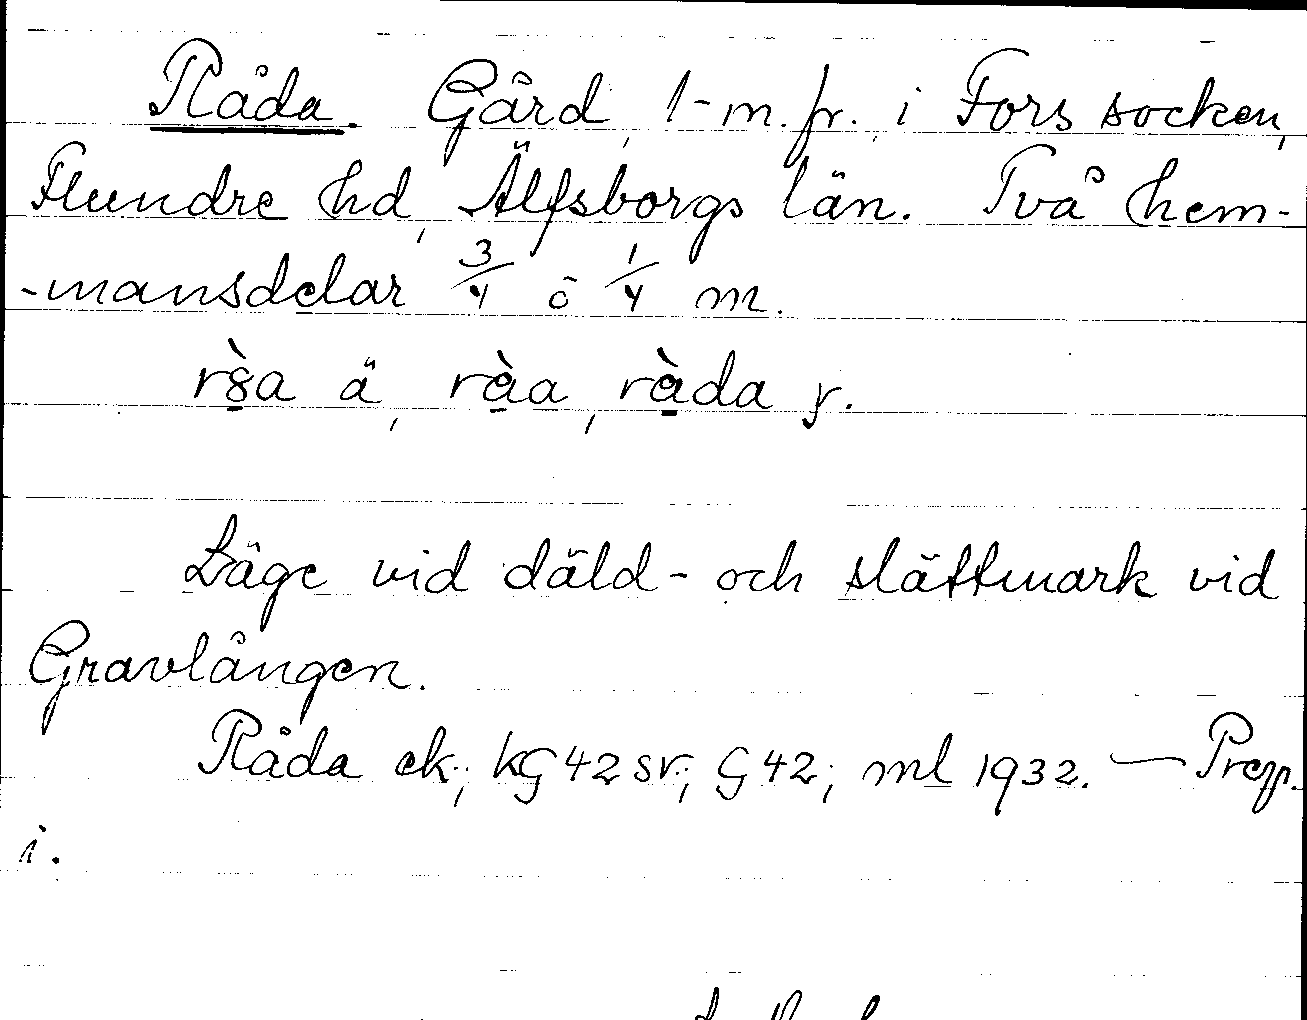 Råda. Gård, 1-m. fr., i Fors socken,
Flundre hd, Älfsborgs län. Två hem-
-mansdelar 3/4 o 1/4 m.
rs̀a ä, ràa, ràda y.
Läge vid däld- och slättmark vid
Gravlången.
Råda ek; kG 42 sv; G 42; ml 1932. — Prep.
i.